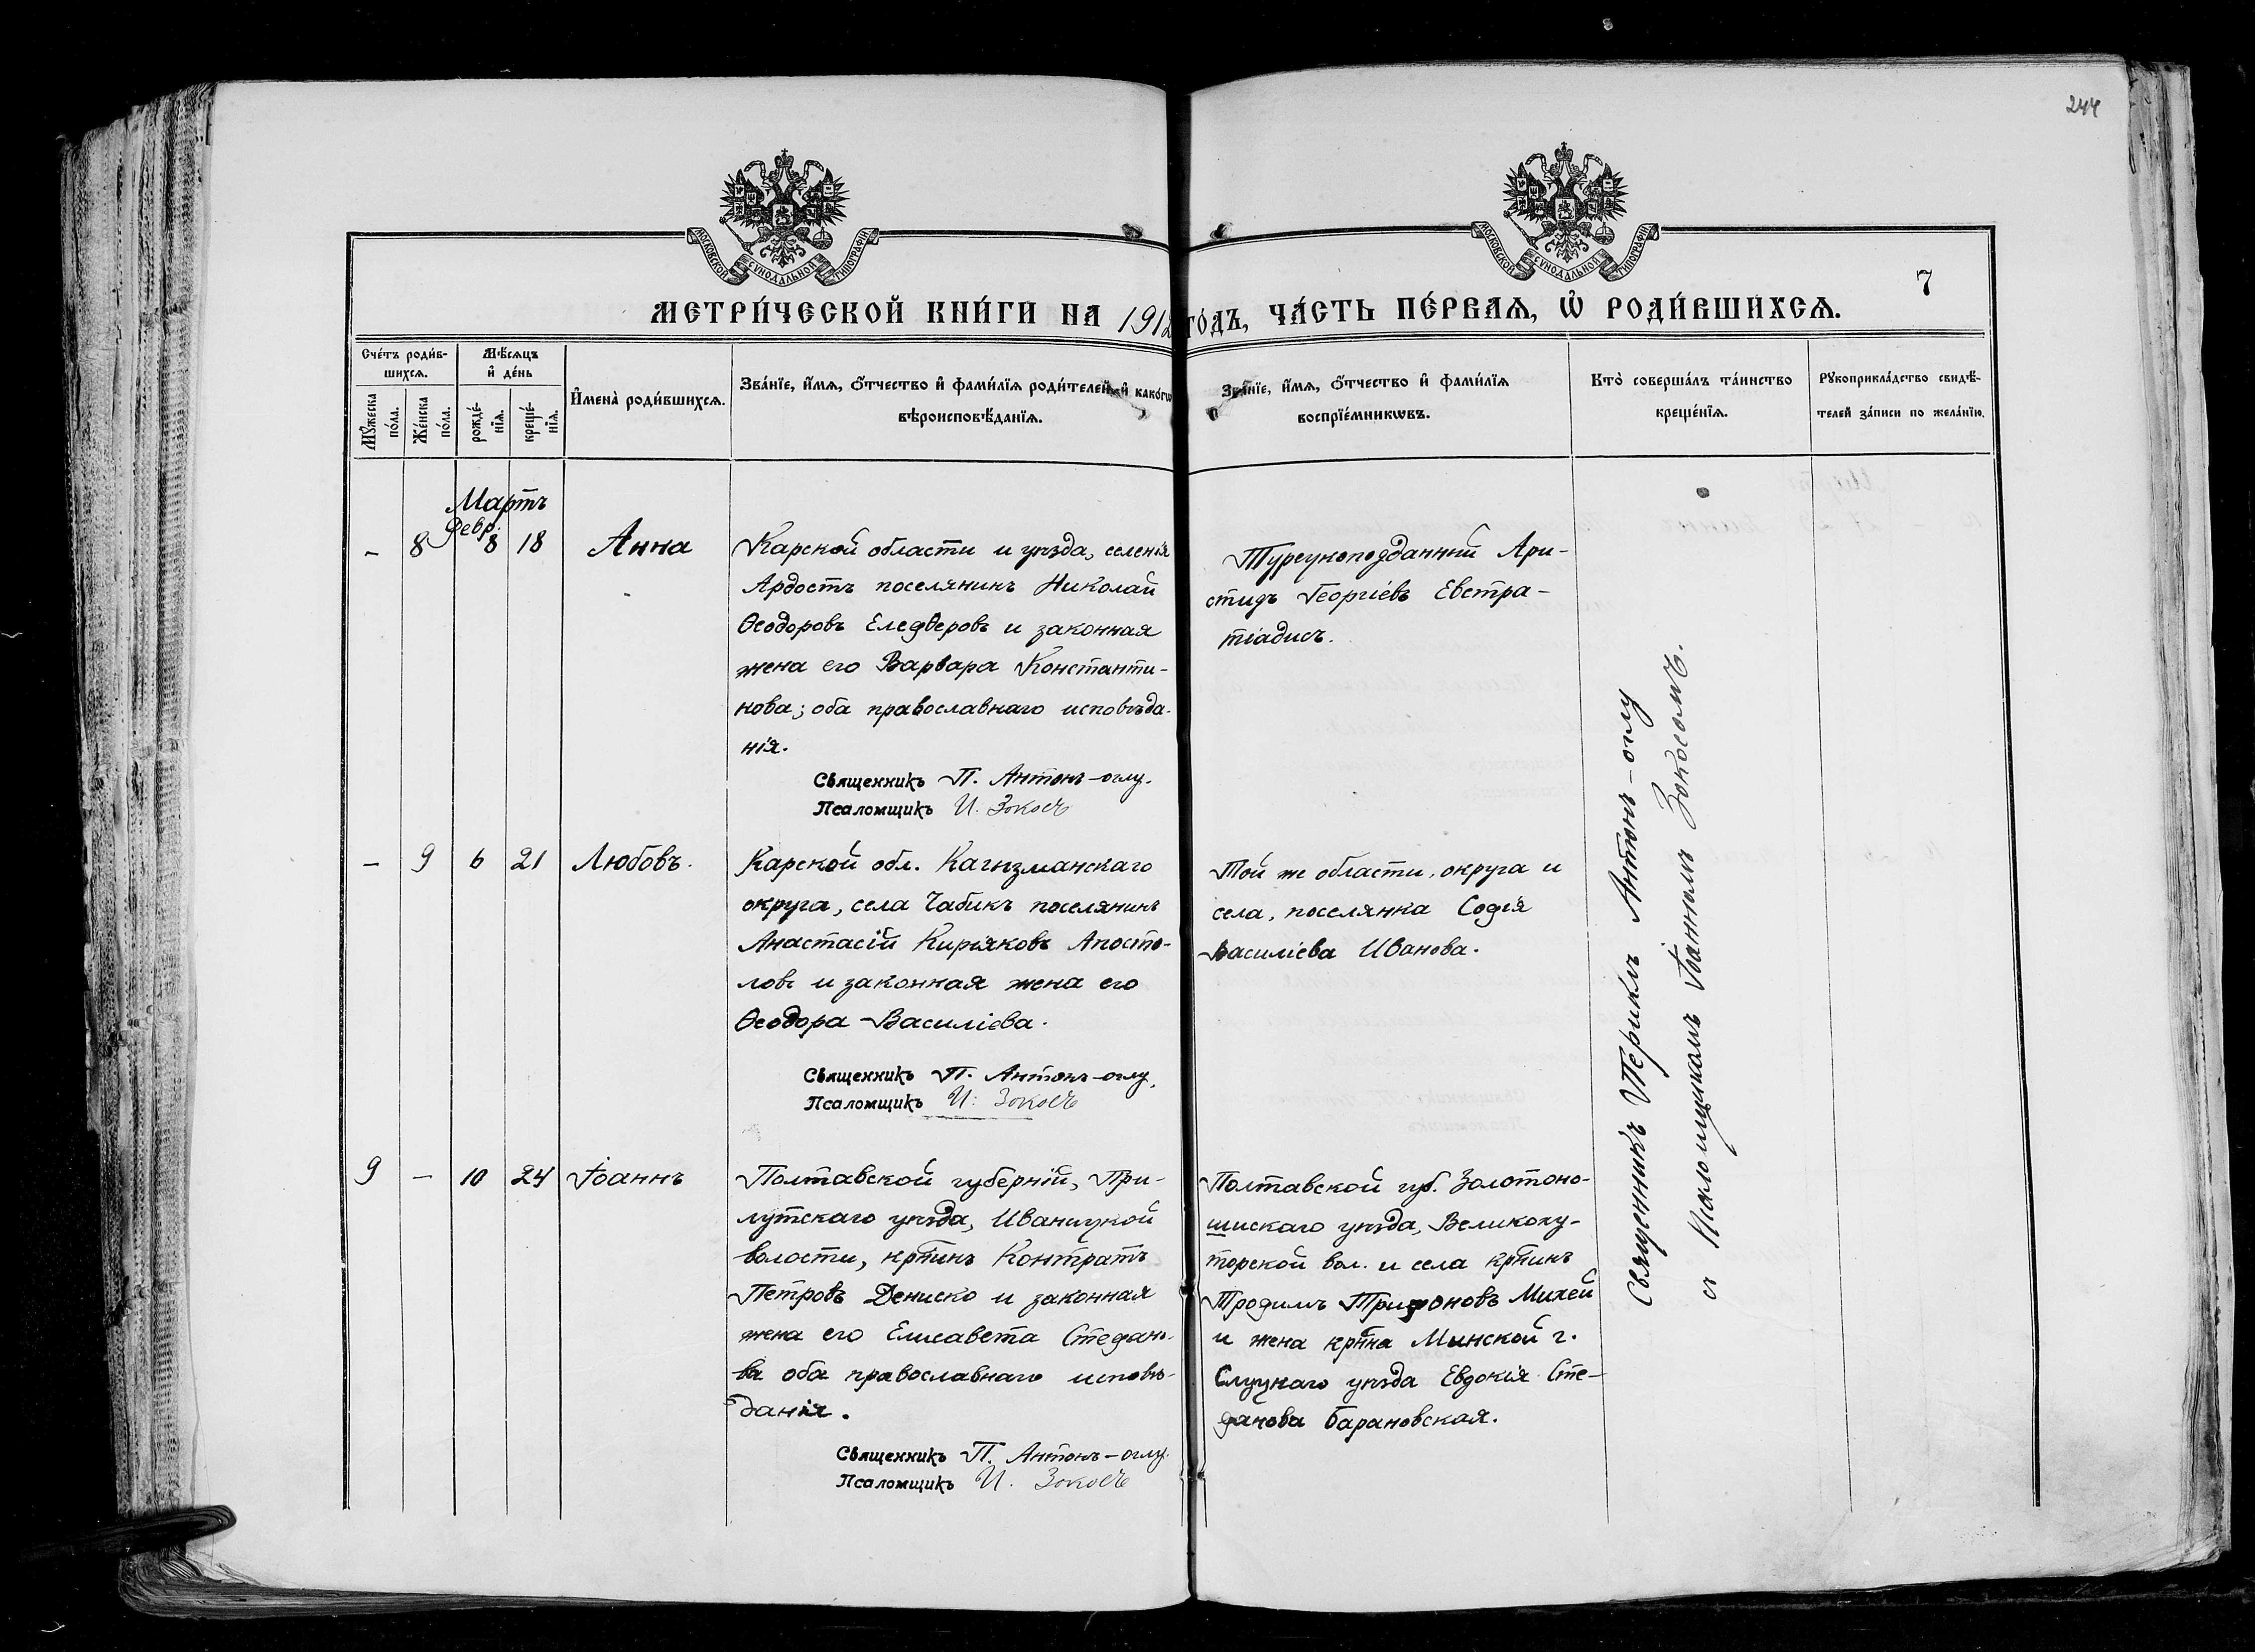 244
МОСКОВСКОЙ СѴНОДАЛЬНОЙ ТИПОГРАФІИ
МОСКОВСКОЙ СѴНОДАЛЬНОЙ ТИПОГРАФІИ
7
МЕТРИ́ЧЕСКОЙ КНИ́ГИ НА 1912 ГО́ДЪ, ЧА́СТЬ ПЕ́РВАѦ, Ѡ҆ РОДИ́ВШИХСѦ.
Сче́тъ роди́в-
шихсѧ.
Мꙋ́жеска по́ла.
Же́нска по́ла.
Мѣ́сѧцъ
и҆ де́нь
рожде́-нїѧ.
креще́-нїѧ.
И҆мена̀ роди́вшихсѧ.
Зва́нїе, и҆́мѧ, ѻ҆́тчество и҆ фами́лїѧ роди́телей, и҆ како́гѡ
вѣроисповѣ́данїѧ.
Зва́нїе, и҆́мѧ, ѻ҆́тчество и҆ фами́лїѧ
воспрїе́мникѡвъ.
Кто̀ соверша́лъ та́инство
креще́нїѧ.
Рꙋкоприкла́дство свидѣ́-
телей за́писи по жела́нїю.
Мартъ
Февр.
– 8 8 18 Анна
Карской области и уѣзда, селенія
Ардостъ поселянинъ Николай
Ѳеодоровъ Елефѳеровъ и законная
жена его Варвара Константи-
нова; оба православнаго исповѣда-
нія.
Священникъ П. Антонъ-оглу.
Псаломщикъ И. Зокосъ
Турецкоподданный Ари-
стидъ Георгіевъ Евстра-
тіадисъ.
– 9 6 21 Любовъ.
Карской обл. Кагызманскаго
округа, села Чабикъ поселянинъ
Анастасій Киріяковъ Апосто-
ловъ и законная жена его
Ѳеодора Василіева.
Священникъ П. Антонъ-оглу.
Псаломщикъ И. Зокосъ
Той же области, округа и
села, поселянка Софія
Василіева Иванова.
9 – 10 24 Іоаннъ
Полтавской губерніи, При-
лутскаго уѣзда, Иваницкой
волости, крнинъ Контратъ
Петровъ Дениско и законная
жена его Елисавета Стефано-
ва оба православнаго исповѣ-
данія.
Священникъ П. Антонъ-оглу.
Псаломщикъ И. Зокосъ
Полтавской губ. Золотоно-
шискаго уѣзда, Великоху-
торской вол. и села крнинъ
Тродимъ Трифоновъ Михей
и жена крнна Минской г.
Слуцкаго уѣзда Евдокія Сте-
фанова Барановская.
Священникъ Терикль Антонъ-оглу
съ Псаломщикомъ Іоанномъ Зокосомъ.